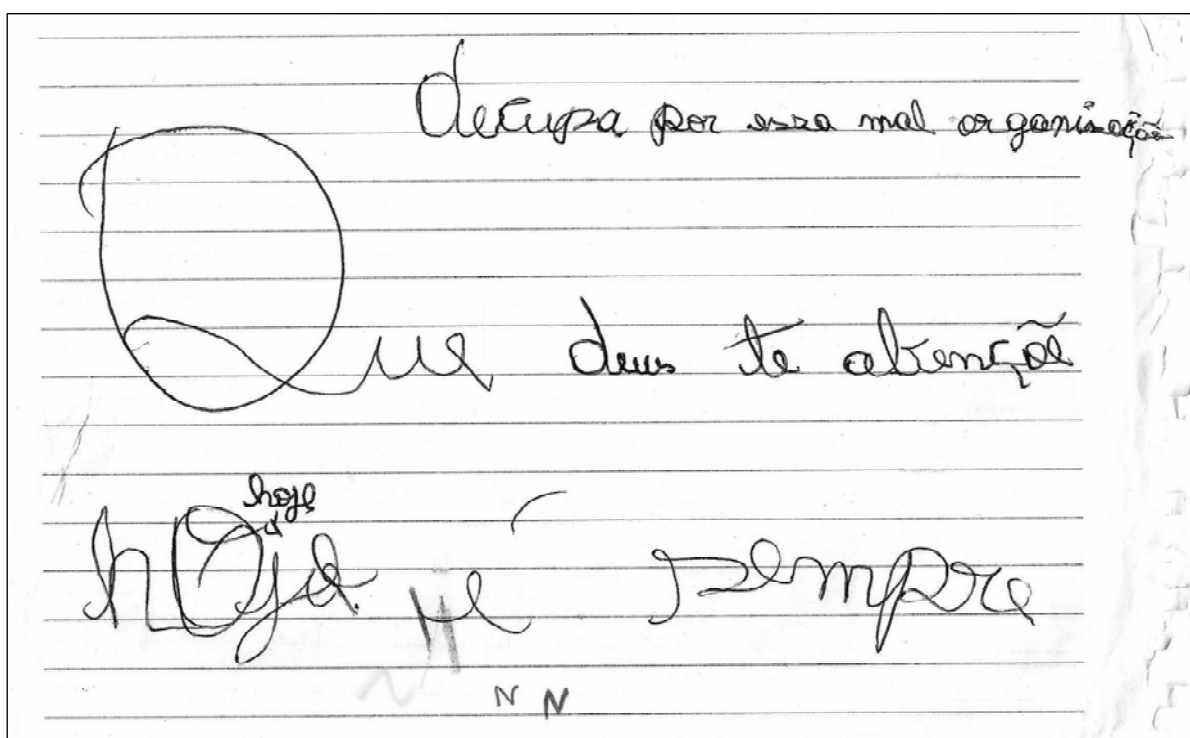 decupa por essa mal organisação
Que deus te abençõe
hoje
hoje é sempre
N N